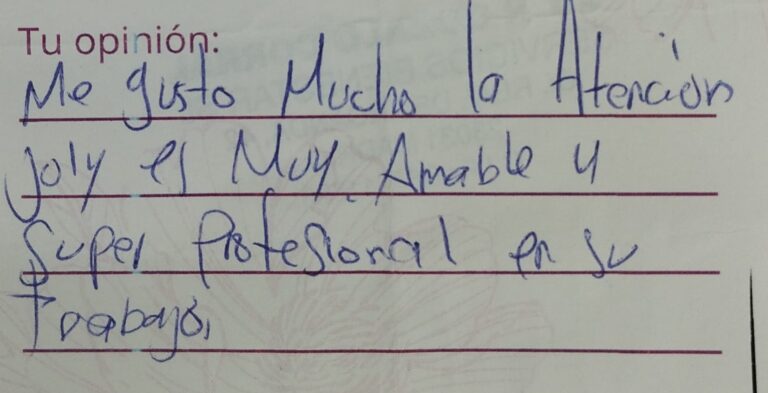 Tu opinión:
Me gusto Mucho la Atención
Joly es Muy. Amable y
Super Profesional en su
trabajo,